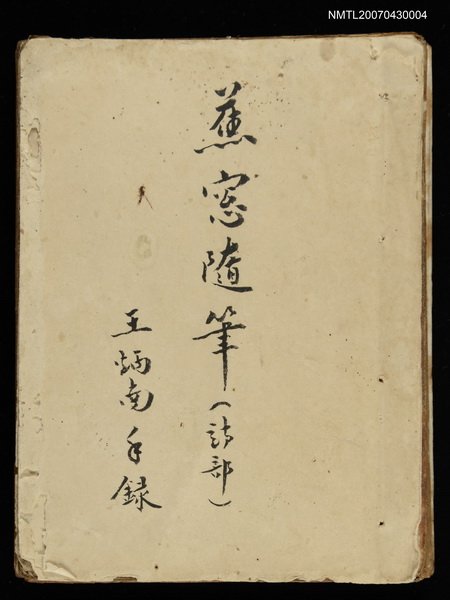 NMTL20070430004
蕉窓隨筆(詩部)
王炳南手録